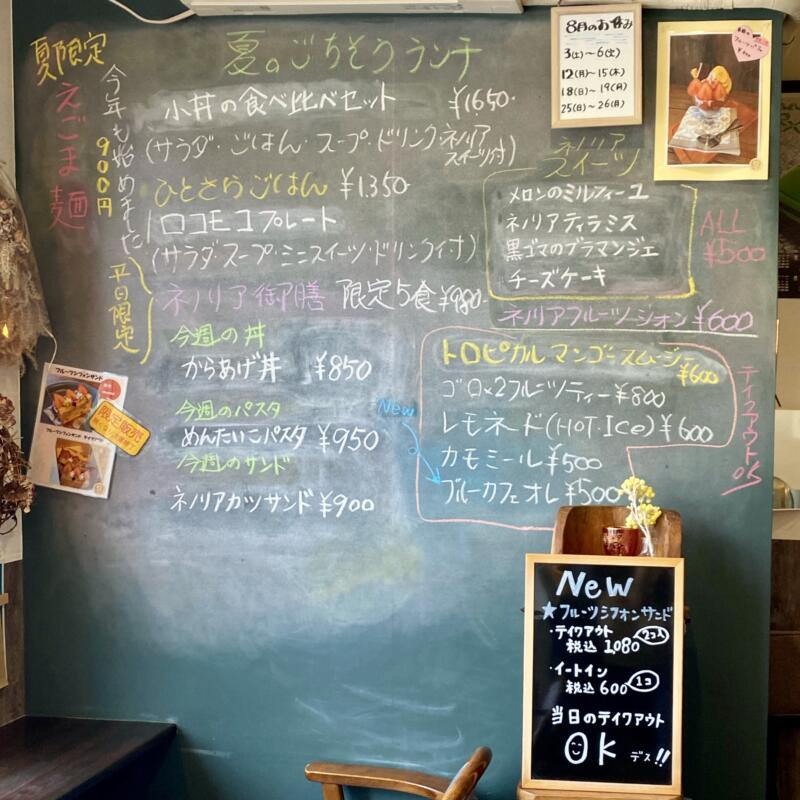 夏限定
えごま麺
900円
今年も始めました
夏のごちそうランチ
小丼の食べ比べセット ¥1650.
(サラダ・ごはん・スープ・ドリンク ネリアスイーツ付)
ひとさらごはん ¥1.350
ロコモコプレート
(サラダ・スープ・ミニスイーツ・ドリンク付)
平日限定
ネリア御膳 限定5食 ¥980-
今週の丼
からあげ丼 ¥850
今週のパスタ
めんたいこパスタ ¥950
今週のサンド
ネリアカツサンド ¥900
8月のお休み
3(土)~6(火)
12(月)~15(木)
18(日)~19(月)
25(日)~26(月)
¥600
ネリア
スイーツ
メロンのミルフィーユ
ネリアティラミス
黒ゴマのブラマンジェ
チーズケーキ
ALL
¥500
ネリアフルーツシフォン ¥600
トロピカルマンゴースムージー
¥600
ゴロ×2フルーツティー ¥800
レモネード(HOT・Ice) ¥600
カモミール ¥500
New
ブルーカフェオレ ¥500
テイクアウトOK
フルーツシフォンサンド
限定販売
New
★フルーツシフォンサンド
・テイクアウト 2コ入
税込 1,080
・イートイン 1コ
税込 600
当日のテイクアウト
OK デス!!